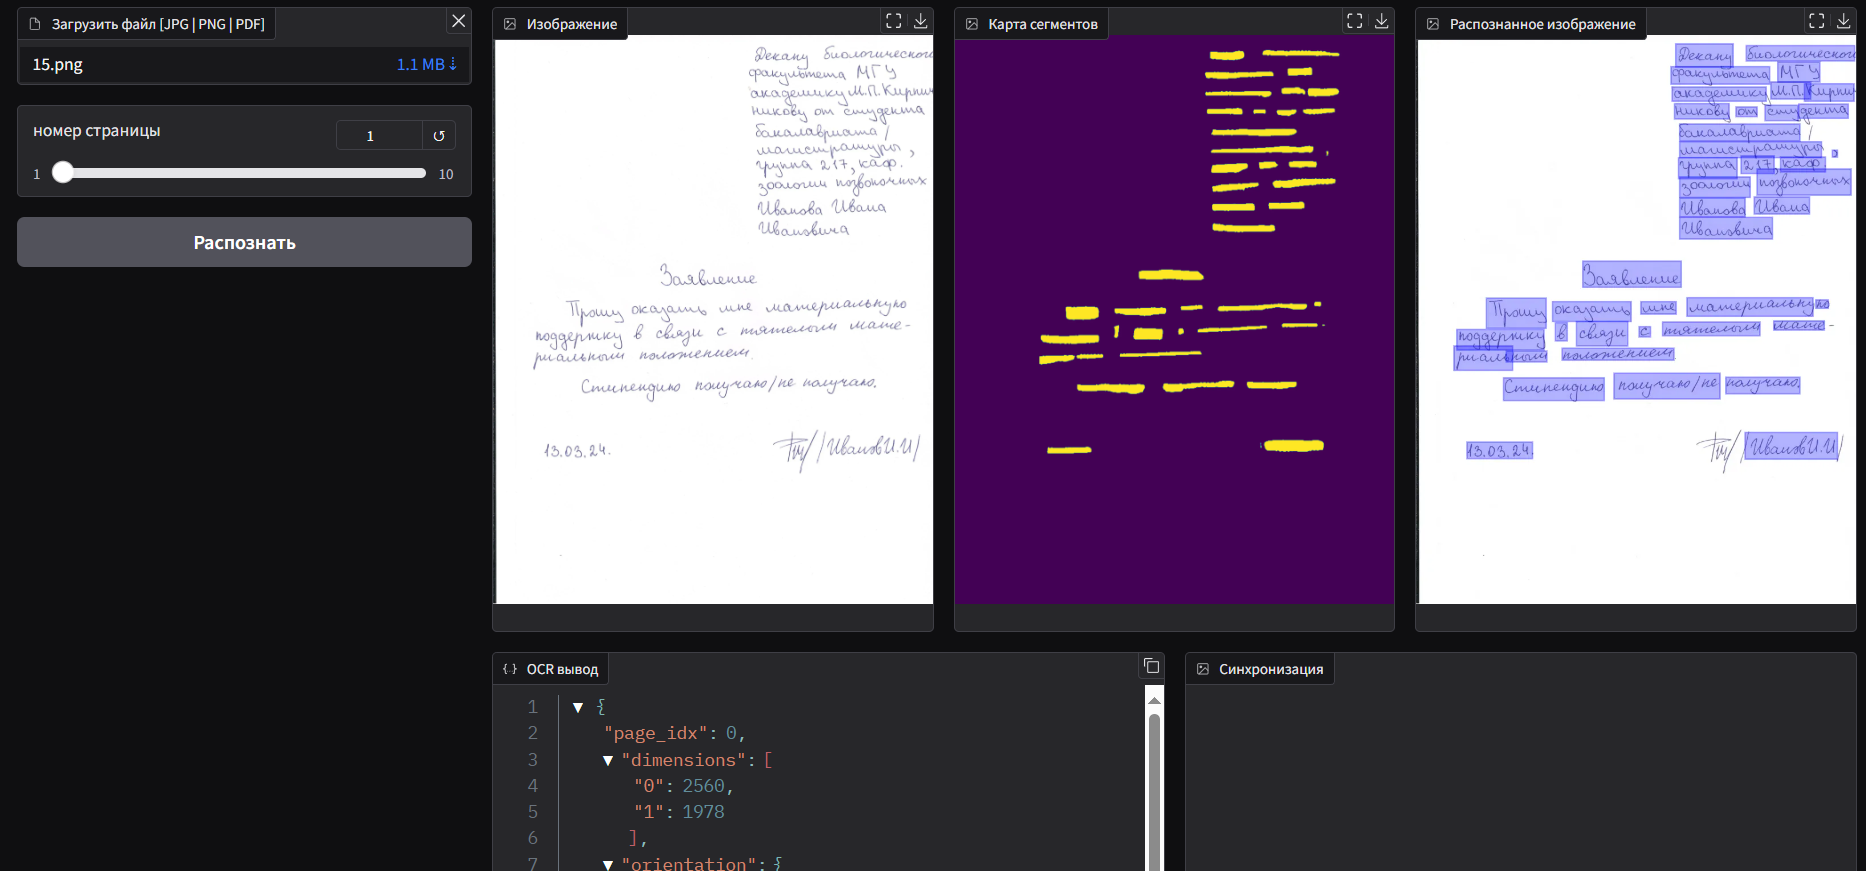 Загрузить файл [JPG | PNG | PDF]
15.png
1.1 MB ⇣
номер страницы
1
1
10
Распознать
Изображение
Декану биологического
факультета МГУ
академику М.П. Кирпич
никову от студента
бакалавриата /
магистратуры,
группа 217, каф.
зоологии позвоночных
Иванова Ивана
Ивановича
Заявление
Прошу оказать мне материальную
поддержку в связи с тяжелым мате-
риальным положением.
Стипендию получаю/не получаю.
13.03.24.
/ИвановИ.И/
Карта сегментов
Распознанное изображение
Декану биологического
факультета МГУ
академику М.П. Кирпич
никову от студента
бакалавриата /
магистратуры,
группа 217, каф.
зоологии позвоночных
Иванова Ивана
Ивановича
Заявление
Прошу оказать мне материальную
поддержку в связи с тяжелым мате-
риальным положением
Стипендию получаю/не получаю.
13.03.24.
/ИвановИ.И/
OCR вывод
1 ▼ {
2 "page_idx": 0,
3 ▼ "dimensions": [
4 "0": 2560,
5 "1": 1978
6 ],
7 ▼ "orientation": {
Синхронизация